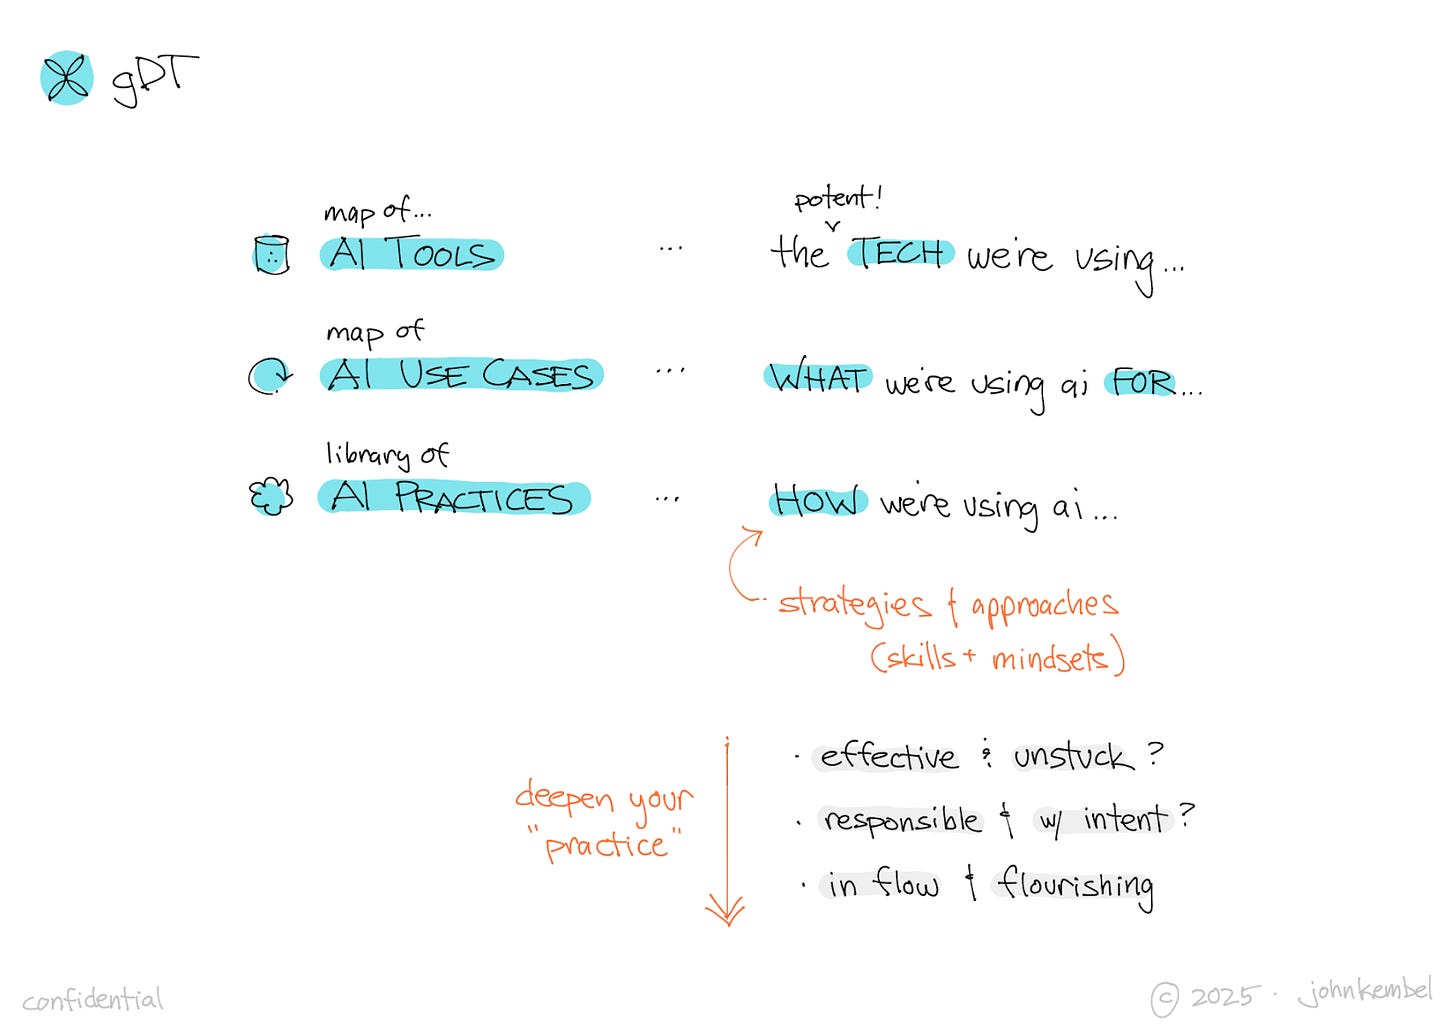 gDT
map of...
AI TOOLS ... the TECH we're using...
potent!
map of
AI USE CASES ... WHAT we're using ai FOR...
library of
AI PRACTICES ... HOW we're using ai...
strategies & approaches
(skills + mindsets)
deepen your
"practice"
· effective & unstuck?
· responsible & w/ intent?
· in flow & flourishing
confidential
© 2025 · johnkembel